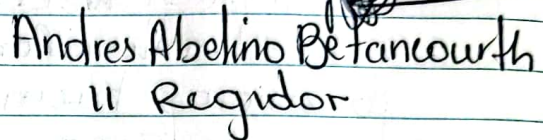 Andres Abelino Betancourth
11 Regidor